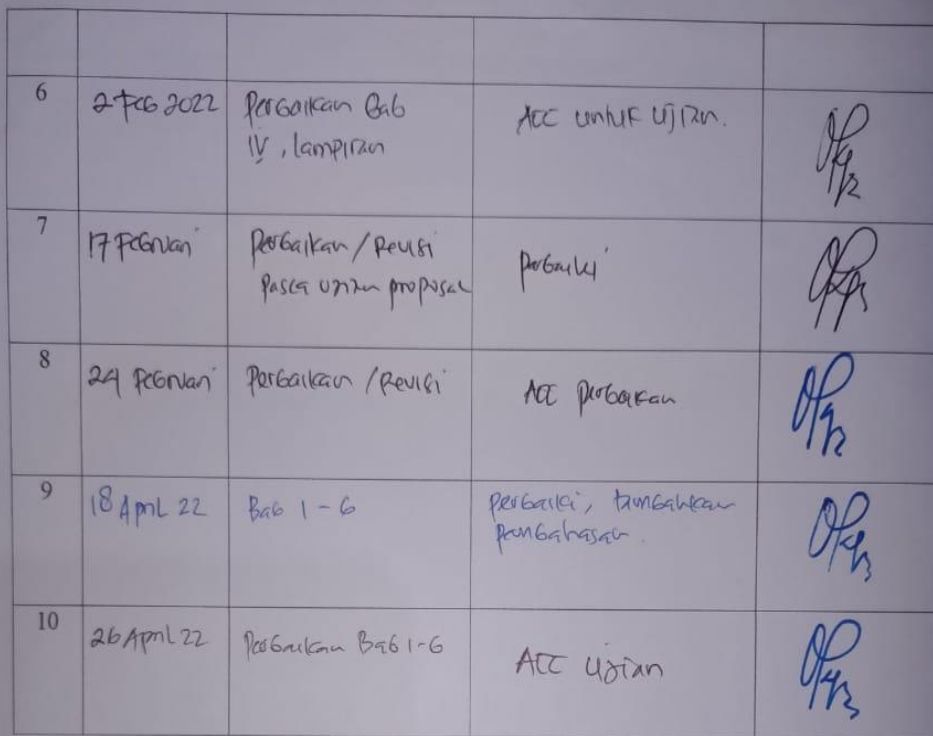 6 2 Feb 2022 Perbaikan Bab ACC untuk Ujian.
IV, lampiran
7 17 Februari Perbaikan / Revisi perbaiki
pasca ujian proposal
8 24 Februari Perbaikan / Revisi ACC perbaikan
9 18 April 22 Bab 1 - 6 perbaiki, tambahkan
pembahasan.
10 26 April 22 Perbaikan Bab 1-6 ACC Ujian